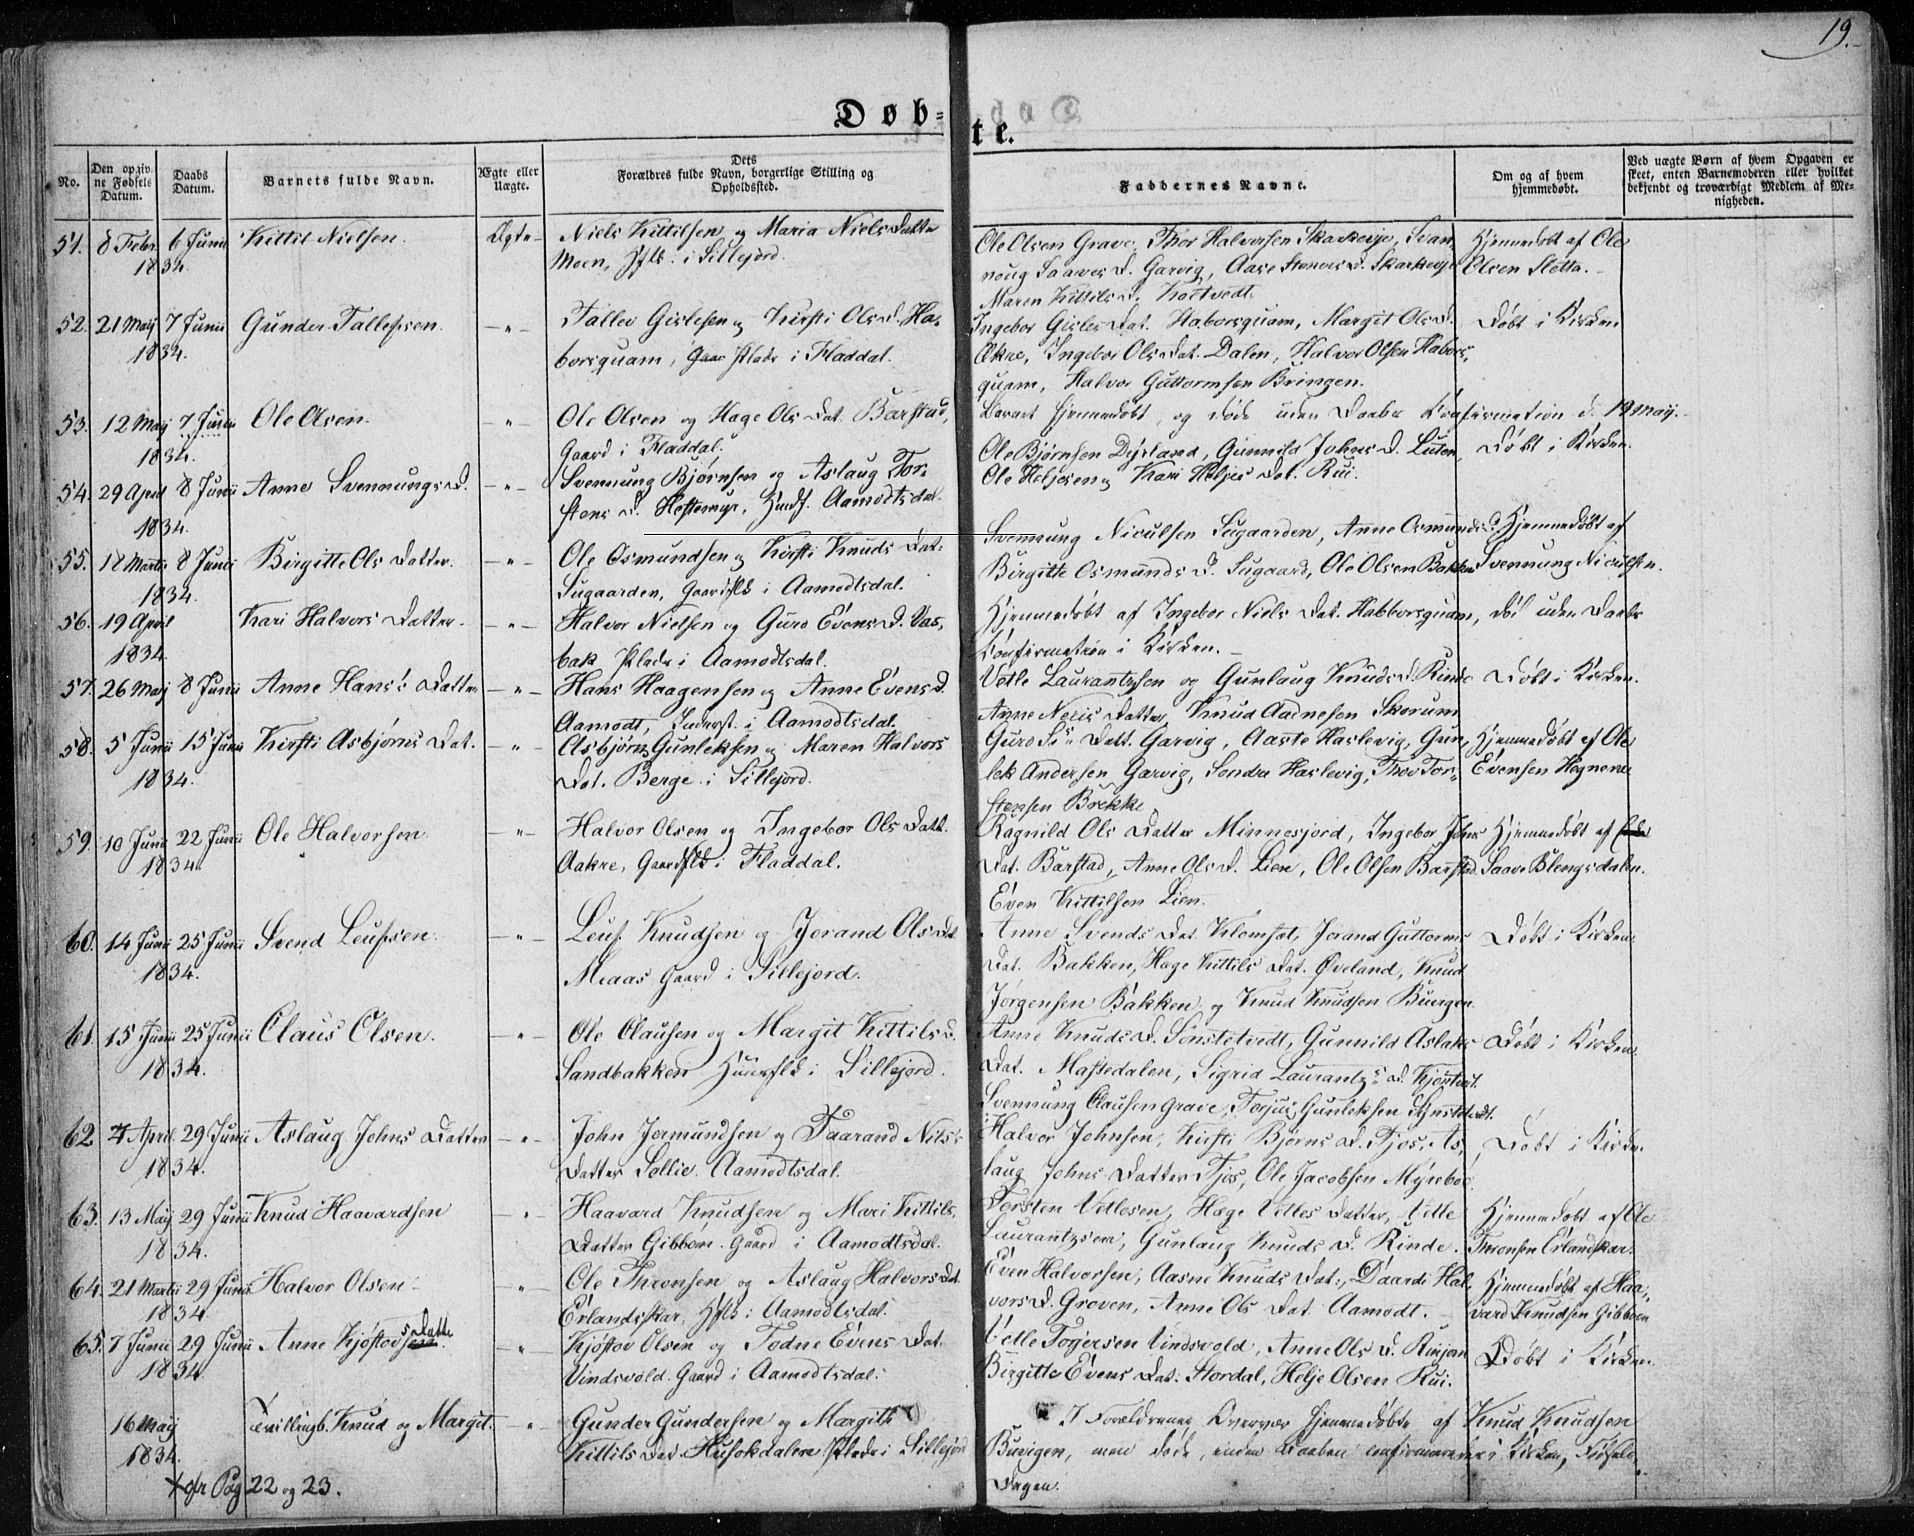 19.
Døb-
te.
No.
Den opgiv-
ne Fødsels
Datum.
Daabs
Datum.
Barnets fulde Navn.
Ægte eller
Uægte.
Dets
Forældres fulde Navn, borgerlige Stilling og
Opholdssted.
Faddernes Navne.
Om og af hvem
hjemmedøbt.
Ved uægte Børn af hvem Opgaven er
skeet, enten Barnemoderen eller hvilket
bekjendt og troværdigt Medlem af Me-
nigheden.
51. 8 Febr. 6 Junii Kittil Nielsen. Ægte Niels Kittilsen og Maria Niels Datter
1834. Moen, i Sillejord.
Ole Olsen Grave, Thor Halvorsen Skarkeije, Svan- Hjemmedøbt af Ole
noug Saaves D. Garvig, Aase Steners D. Skarkeije Olsen Sletta.
Maren Kittils D. Kortvedt.
52. 21 Maij 7 Junii Gunder Tallefsen. -"- Tallev Gislesen og Kirsti Ols D. Ha-
1834. borsquam, Plads i Fladdal.
Ingebor Gisles Dat. Haborsquam, Margit Ols D. Døbt i Kirken
Økre, Ingebor Ols Dat. Dalen, Halvor Olsen Habors-
quam, Halvor Guttormsen Bringen.
53. 12 Maij 7 Junii Ole Olsen. -"- Ole Olsen og Hage Ols Dat. Barstad,
1834. Gaard i Fladdal.
Barnet hjemmedøbt, og døde uden Daabs Confirmation d. 19 Maij.
54. 29 April 8 Junii Anne Svennungs D. -"- Svennung Bjørnsen og Aslaug Tor-
1834. stens D. Hestemyr, Aamodtsdal.
Ole Bjørnsen Dejsland, Gunnild Johns D. Luten Døbt i Kirken.
Ole Heljesen og Kari Heljes Dat. Rui.
55. 18 Martii 8 Junii Birgitte Ols Datter. -"- Ole Osmundsen og Kirsti Knuds Dat:
1834. Sugaarden, i Aamodtsdal.
Svennung Niculsen Sugaarden, Anne Osmunds D. Hjemmedøbt af
Birgitte Osmunds D. Sugaard, Ole Olsen Bakken Svennung Niculsen.
56. 19 April Kari Halvors Datter. -"- Halvor Nielsen og Guro Evens D. Vas-
1834. bak Plads i Aamodtsdal.
Hjemmedøbt af Ingebor Niels Dat. Habborsquam, død uden Daabs
Confirmation i Kirken.
57. 26 Maij 8 Junii Anne Hans's Datter -"- Hans Haagensen og Anne Evens D.
Aamodt, Inderst. i Aamodtsdal.
Vetle Laurantzsen og Gunlaug Knuds D. Rinde Døbt i Kirken.
Anne Datter, Knud Aadnesen Skorum
58. 5 Junii 15 Junii Kirsti Asbjørns Dat. -"- Asbjørn Gunleksen og Maren Halvors
1834. Dat. Berge i Sillejord.
Guro Datt. Garvig, Aaste Haslevig, Gun- Hjemmedøbt af Ole
lek Andersen Garvig, Sondre Haslevig, Thov Tor- Evensen Hegnene
stensen Brekke
59. 10 Junii 22 Junii Ole Halvorsen. -"- Halvor Olsen og Ingebor Ols Datt.
1834. Aakre, i Fladdal.
Ragnild Ols Datter Minnesjord, Ingebor Johns Hjemmedøbt af
Dat. Barstad, Anne Ols D. Lien, Ole Olsen Barstad. Saave Blengsdalen.
Even Kittilsen Lien.
60. 14 Junii 25 Junii Svend Leufsen. -"- Leuf Knudsen og Jorand Ols D.
1834. Maas Gaard i Sillejord.
Anne Svends Dat. Klomset, Jorand Guttorms Døbt i Kirken.
Dat. Bakken, Hage Kittils Dat. Øveland, Knud
Jørgensen Bakken og Knud Knudsen
61. 15 Junii 25 Junii Claus Olsen. -"- Ole Clausen og Margit Kittils D.
1834. Sandbakken i Sillejord.
Anne Knuds D. Sønstetvedt, Gunnild Aslaks Døbt i Kirken
Dat. Mastedalen, Sigrid Laurantz's D.
Svennung Clausen Grave, Torjus Gunleksen
62 4 April 29 Junii Aslaug Johns Datter -"- John Jormundsen og Taarand Nils's
1834. Datter Sollie. Aamodtsdal.
Halvor Johnsen, Kirsti Bjørns D. Tjos, As- Døbt i Kirken.
laug Johns Datter Tjos, Ole Jacobsen Myrebøe
63. 13 Maij 29 Junii Knud Haavardsen -"- Haavard Knudsen og Mari Kittils
1834. Datter Gibbøn. Gaard i Aamodtsdal.
Torsten Vetlesen, Hæge Vetles Datter, Vetle Hjemmedøbt af Ole
Laurantzsen, Gunlaug Knuds D. Rinde. Thronsen Erlandskar.
64. 21 Martii 29 Junii Halvor Olsen -"- Ole Thronsen og Aslaug Halvors Dat.
1834. Erlandsskar, i Aamodtsdal.
Even Halvorsen, Aasne Knuds Dat:, Daarde Hal- Hjemmedøbt af Haa-
vors D. Groven, Anne Ols Dat. Aamodt. vard Knudsen Gibbøen
65. 7 Junii 29 Junii Anne Kjøstovs Datter -"- Kjøstov Olsen og Todne Evens Dat.
1834. Vindsvold. Gaard i Aamodtsdal.
Vetle Torjersen Vindsvold, Anne Ols D. Døbt i Kirken.
Birgitte Evens Dat: Stordal, Helje Olsen Rui.
16 Maij Tvillingb. Knud og Margit. -"- Gunder Gundersen og Margith
1834. Kittils Dat Husokdalen Plads i Sillejord
I Forældrenes Overvær hjemmedøbte af Knud Knudsen
men døde, inden Daaben confirmeredes i Kirken, Fødsels-
Dagen.
+ cfr Pag 22 og 23.